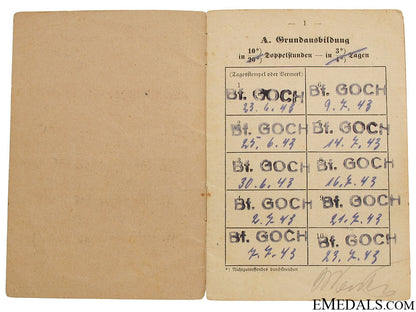 — 1 —
A. Grundausbildung
in 10*) 20*) Doppelstunden — in 3*) 4*) Tagen
(Tagesstempel oder Vermerk)
Bf. GOCH 23. 6. 43
6. Bf. GOCH 9. 7. 43
Bf. GOCH 25. 6. 43
Bf. GOCH 14. 7. 43
Bf. GOCH 30. 6. 43
Bf. GOCH 16. 7. 43
Bf. GOCH 2. 7. 43
Bf. GOCH 21. 7. 43
Bf. GOCH 7. 7. 43
10. Bf. GOCH 23. 7. 43
*) Nichtzutreffendes durchstreichen
EMEDALS.COM